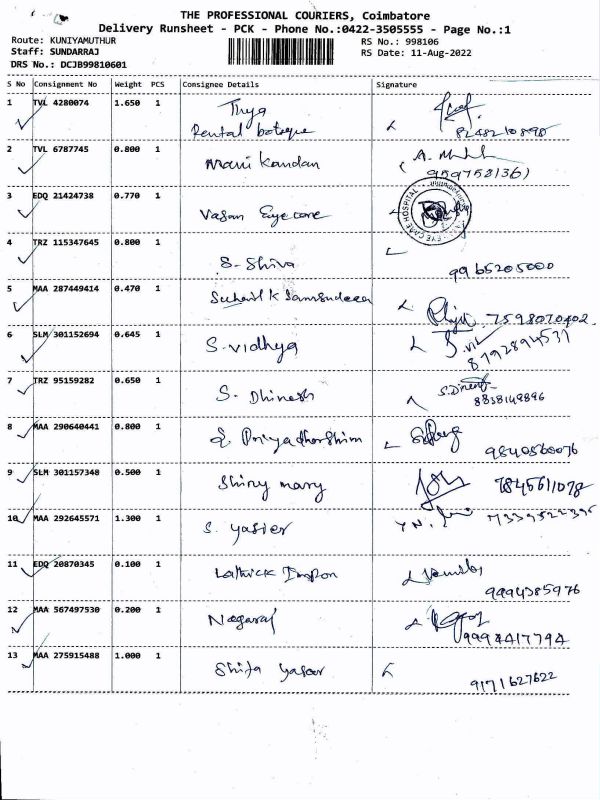 THE PROFESSIONAL COURIERS, Coimbatore
Delivery Runsheet - PCK - Phone No.:0422-3505555 - Page No.:1
Route: KUNIYAMUTHUR
Staff: SUNDARRAJ
DRS No.: DCJB99810601
RS No.: 998106
RS Date: 11-Aug-2022
S No Consignment No Weight PCS Consignee Details Signature
1 TVL 4280074 1.650 1
Rental
2 TVL 6787745 0.800 1 Mani Kandan
3 EDQ 21424738 0.770 1 Vasan Eye care
EYE CARE HOSPITAL
4 TRZ 115347645 0.800 1 S. Shiva 9965205000
5 MAA 287449414 0.470 1 7598070402
6 SLM 301152694 0.645 1 S. Vidhya 8792894531
7 TRZ 95159282 0.650 1 S. Dhinesh
8838149896
8 MAA 290640441 0.800 1 Priyadharshini 9840560076
9 SLM 301157348 0.500 1 Shiny mary 7845611078
10 MAA 292645571 1.300 1 S. yasier
11 EDQ 20870345 0.100 1 9994385976
12 MAA 567497530 0.200 1 Nagaraj 9994417794
13 MAA 275915488 1.000 1 Shifa yaseer 9171627622